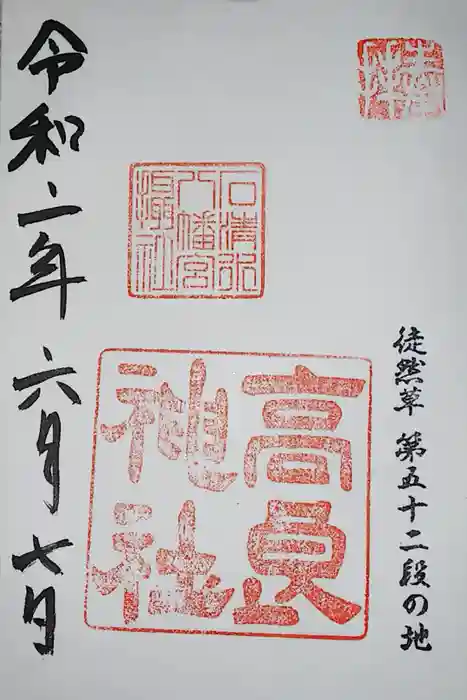 奉拝
徒然草 第五十二段の地
石清水
八幡宮
摂社
高良
神社
令和二年 六月 七日